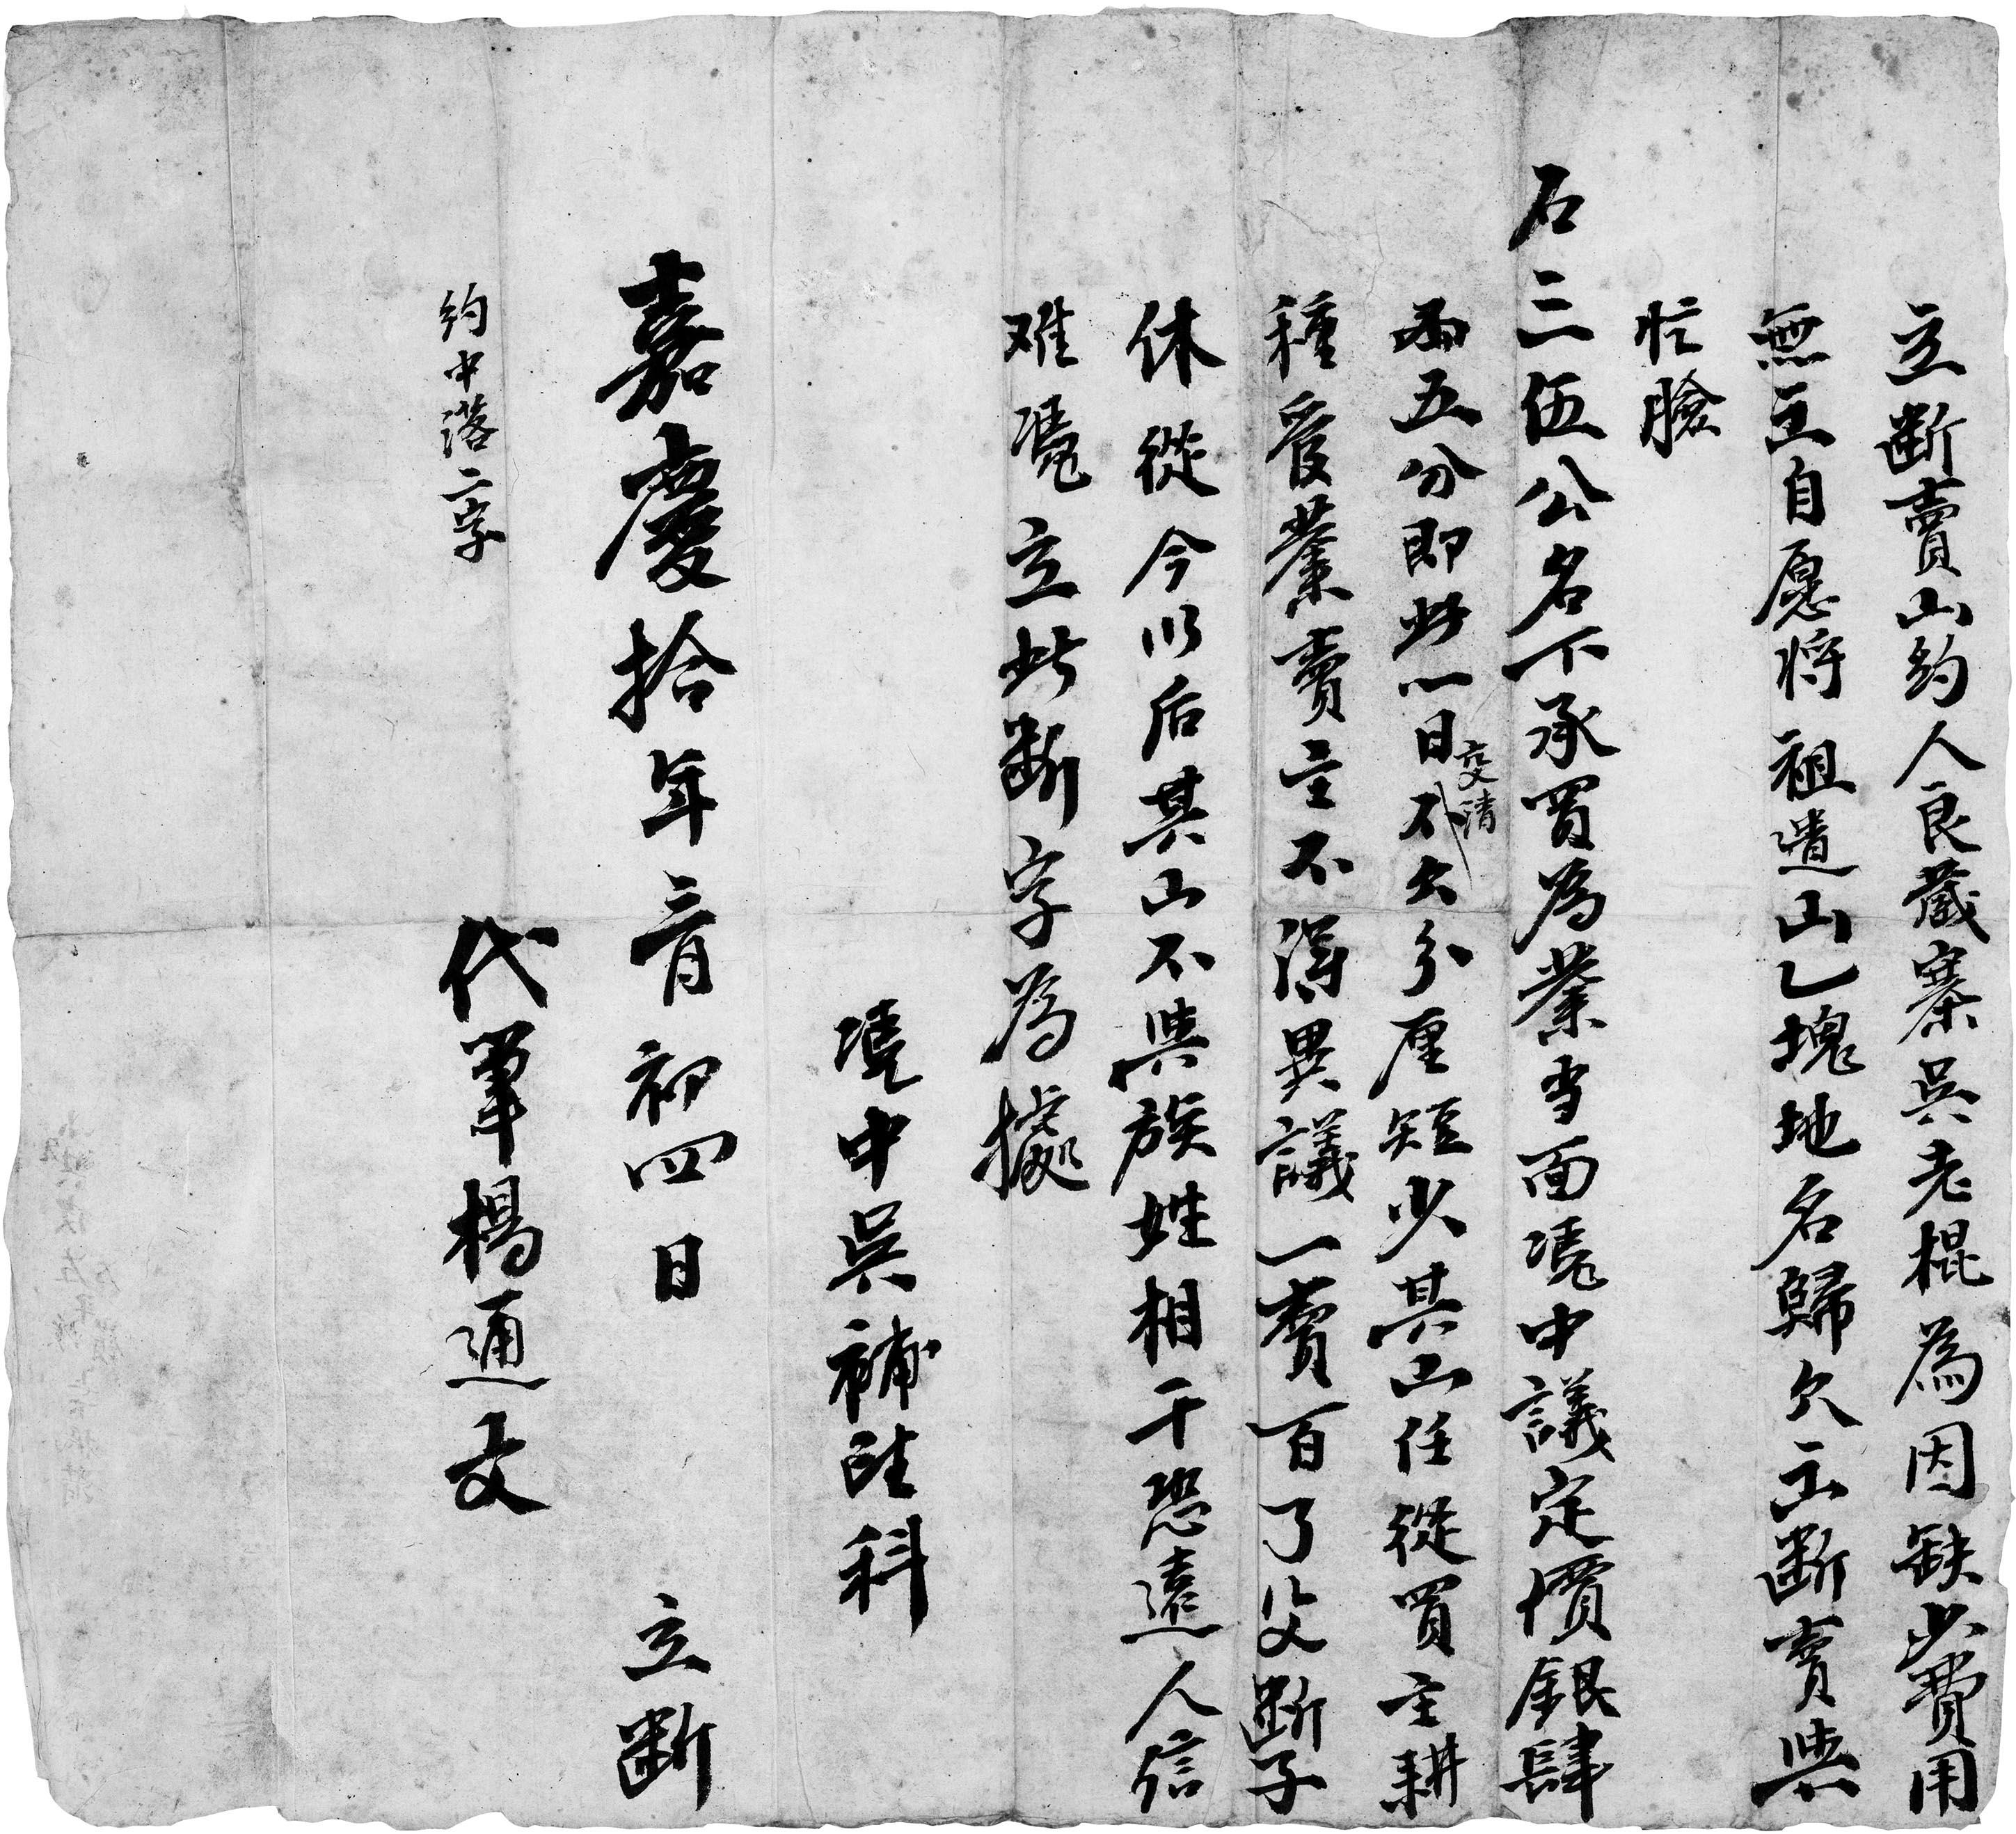 立斷賣山約人良藏寨吳老棍為因缺少費用
無主自愿将祖遺山乙塊地名歸欠立斷賣與
忙臉
石三伍公名下承買為業当面凴中議定價銀肆
両五分即此一日不欠分厘短少其山任從買主耕
交清
種管業賣主不淂異議一賣百了父斷子
休從今以后其山不與族姓相干恐遠人信
难凴立此斷字為據
凴中吳補陸科
嘉慶拾年二月初四日 立斷
約中落二字
代筆楊通文